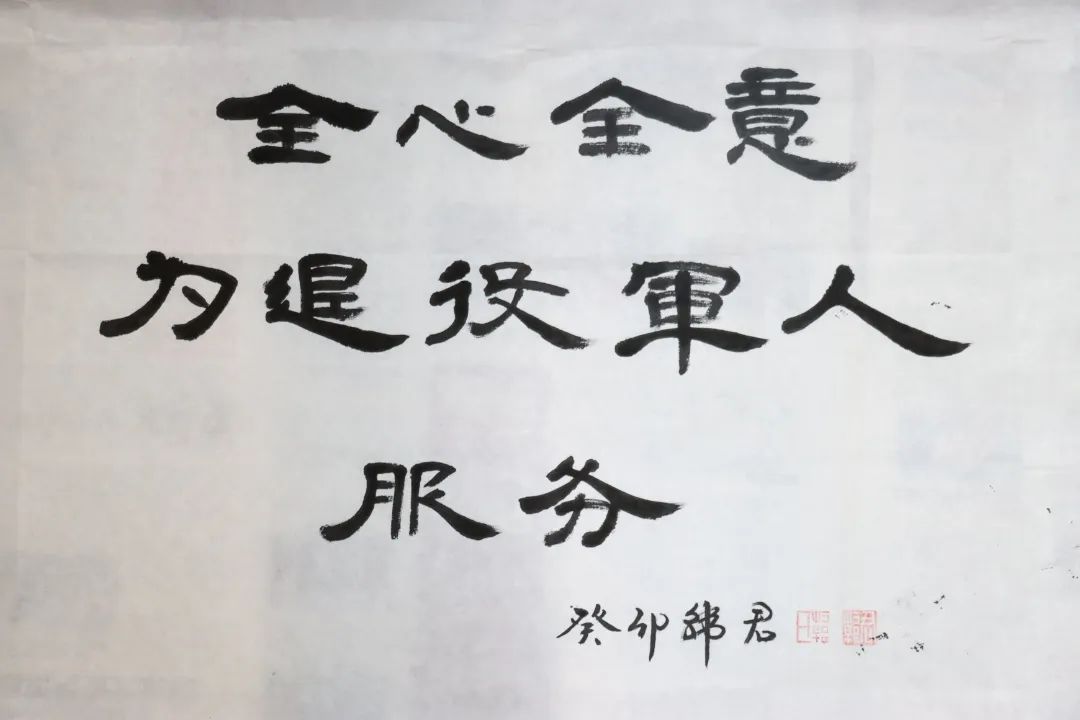 全心全意
为退役軍人
服务
癸卯 君